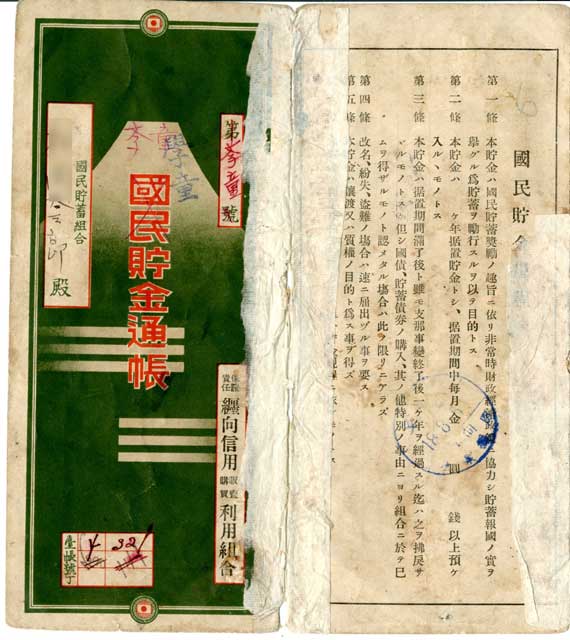 國民貯金
第一條 本貯金ハ國民貯蓄奬勵ノ趣旨ニ依リ非常時財政經濟 ニ協力シ貯蓄報國ノ實ヲ
擧グル爲貯蓄ヲ勵行スルヲ以テ目的トス
第二條 本貯金ハ ケ年据置貯金トシ、据置期間中毎月金 圓 錢以上預ケ
入ルヽモノトス
第三條 本貯金ハ据置期間滿了後ト雖モ支那事變終了後一ケ年ヲ經過スル迄ハ之ヲ拂戻サ
ヾルモノトス但シ國債、貯蓄債券ノ購入、其ノ他特別ノ事由ニヨリ組合ニ於テ已
ムヲ得ザルモノト認メタル塲合ハ此ラ限リニアラズ
第四條 改名、紛失、盜難ノ塲合ハ速ニ屆出ヅル事ヲ要ス
第五條 本貯金ハ讓渡又ハ質權ノ目的ト爲ス事ヲ得ズ
第 學童 號
學童
國民貯金通帳
國民貯蓄組合
殿
保證責任 纏向信用 販賣購買 利用組合
臺帳號丁
4 321